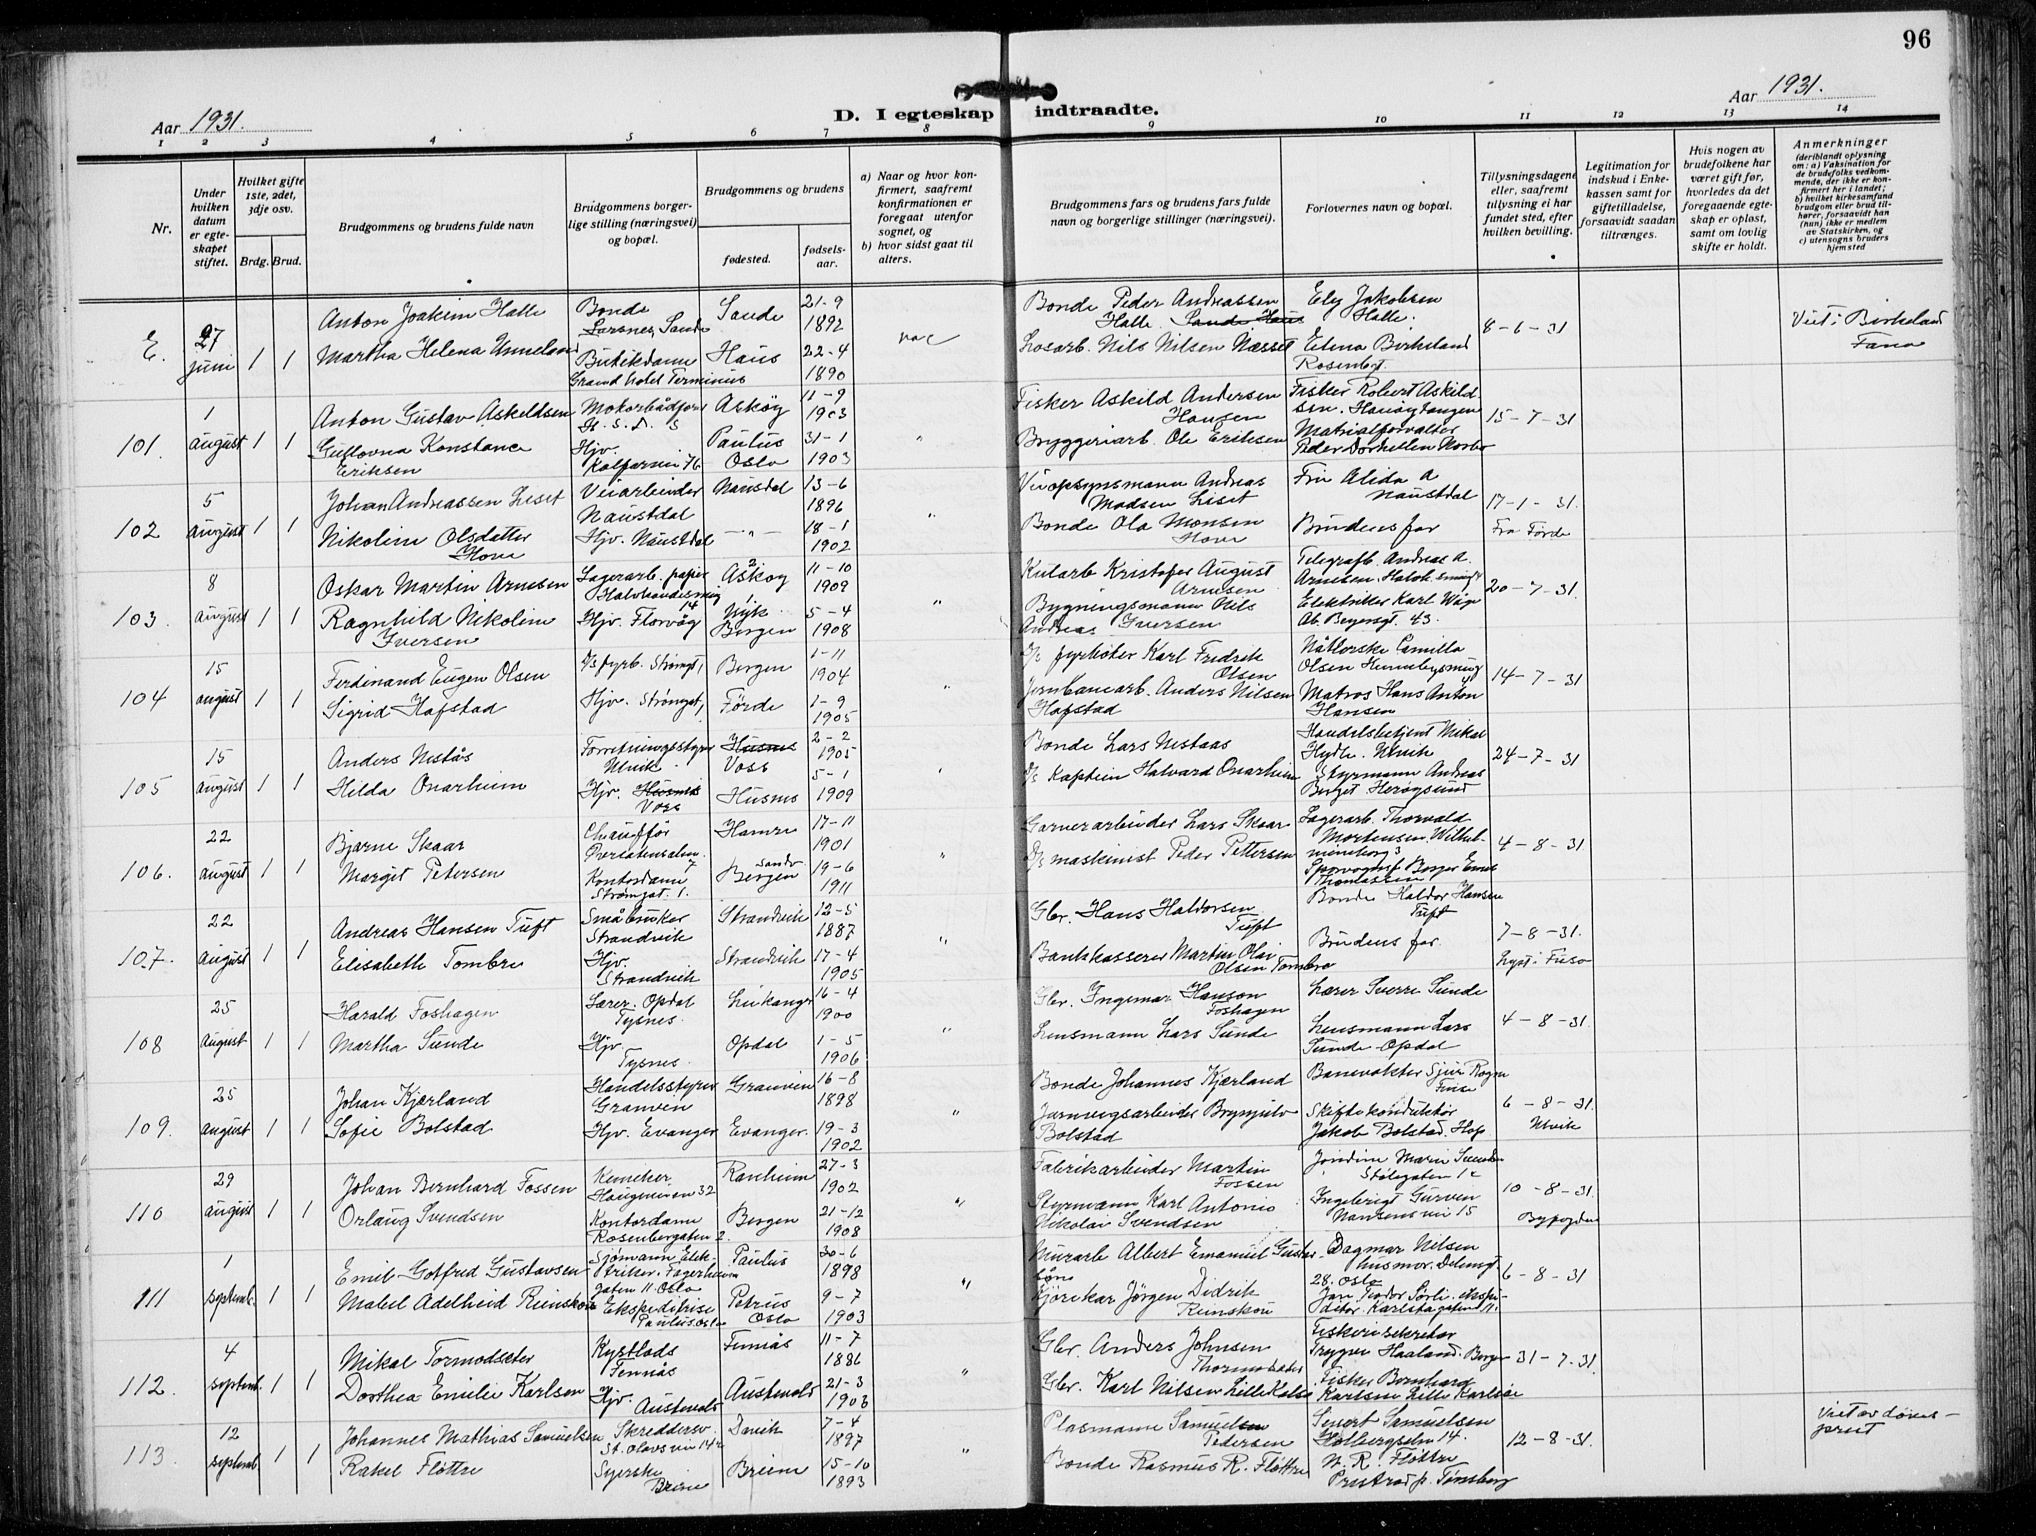 96
Aar 1931.
D. I egteskap indtraadte.
Aar 1931.
1 2 3 4 5 6 7 8 9 10 11 12 13 14
Nr.
Under hvilken datum er egteskapet stiftet.
Hvilket gifte 1ste, 2det, 3dje osv.
Brdg. Brud.
Brudgommens og brudens fulde navn
Brudgommens borgerlige stilling (næringsvei) og bopæl.
Brudgommens og brudens
fødested. fødselsaar.
a) Naar og hvor konfirmert, saafremt konfirmationen er foregaat utenfor sognet, og
b) hvor sidst gaat til alters.
Brudgommens fars og brudens fars fulde navn og borgerlige stillinger (næringsvei).
Forlovernes navn og bopæl.
Tillysningsdagene eller, saafremt tillysning ei har fundet sted, efter hvilken bevilling.
Legitimation for indskud i Enkekassen samt for giftetilladelse, forsaavidt saadan tiltrænges.
Hvis nogen av brudefolkene har været gift før, hvorledes da det foregaaende egteskap er opløst, samt om lovlig skifte er holdt.
Anmerkninger
(deriblandt oplysning om: a) Vaksination for de brudefolks vedkommende, der ikke er konfirmert her i landet; b) hvilket kirkesamfund brudgom eller brud tilhører, forsaavidt han (hun) ikke er medlem av Statskirken, og c) utensogns bruders hjemsted
E. 27 juni 1 1
Anton Joakim Halle Bonde Larsnes, Sande Sande 21-9 1892
Martha Helena Unneland Butikdame Grand hotel Terminus Haus 22-4 1890
Bonde Peder Andreassen Halle. Sande Haus
Losarb. Nils Nilsen Næsset
Ely Jakobsen Halle.
Elena Birkeland Rosenbgt.
8-6-31
Viet i Birkeland Fana
101. 1 august 1 1
Anton Gustav Askeldsen Motorbådfører H. S. D. S Askøy 11-9 1903
Gustovna Konstance Eriksen Hjv. Kalfarvei 76 Paulus Oslo 31-1 1903
Fisker Askild Andersen Hansen
Bryggeriarb. Ole Eriksen
Fisker Robert Askildsen. Hanøytangen
Matrialforvalter Peder
15-7-31
102 5 august 1 1
Johan Andreassen Liset Veiarbeider Naustdal Naustdal 13-6 1896
Nikoline Olsdatter Hove Hjv. Naustdal -"- 18-1 1902
Veiopsynsmann Andreas Madsen Liset
Bonde Ola Monsen Hove
Fru Alida A Naustdal
Brudens far
17-1-31.
Fra Førde
103. 8 august 1 1
Oskar Martin Arnesen Lagerarb. papir 14 Askøy 11-10 1909
Ragnhild Nikoline Iversen Hjv. Florvåg Nyk. Bergen 5-4 1908
Kularb Kristofer August Arnesen
Bygningsmann Nils Andreas Iversen
Telegrafb. Andreas A. Arnesen.
Elektriker Karl
43.
20-7-31.
104 15 august 1 1
Ferdinand Eugen Olsen D/s fyrb. Strømgt, Bergen 1-11 1904
Sigrid Hafstad Hjv. Strømgt, Førde 1-9 1905
D/s fyrbøter Karl Fredrik Olsen
Jernbanearb. Anders Nilsen Hafstad
Camilla Olsen
Matros Hans Anton Hansen
14-7-31
105 15 august 1 1
Anders Nestås Forretningsstyrer Ulvik. Husnes Voss 2-2 1905
Hilda Onarheim Hjv. Husnes Voss Husnes 5-1 1909
Bonde Lars Nestaas
D/s Kaptein Halvard Onarheim
Handelsbetjent Mikal Hydle. Ulvik
Styrmann Andreas Berget Herøysund
24-7-31
106. 22 august 1 1
Bjarne Skaar Chauffør Hamre 17-11 1901
Margit Petersen Kontordame Strømgt. 1. Sandv Bergen 19-6 1911
Garverarbeider Lars Skaar
D/s maskinist Peder Pettersen
Lagerarb. Thorvald Mortensen. Wilhelmineborg 3
Sporvognsf. Birger Emil Thomassen
4-8-31
107. 22 august 1 1
Andreas Hansen Tuft Småbruker Strandvik Strandvik 12-5 1887
Elisabeth Tombre Hjv. Strandvik Strandvik 17-4 1905
Gbr. Hans Haldorsen Tuft
Bankkasserer Martin Olai Olsen Tombre
Bonde Haldor Hansen Tuft
Brudens far.
7-8-31.
Lyst i Fusa
108 25 august 1 1
Harald Foshagen Lærer. Opdal Tysnes. Leikanger 16-4 1900
Martha Sunde Hjv. Tysnes. Opdal 1-5 1906
Gbr. Ingemar Hanson Foshagen
Lensmann Lars Sunde
Lærer Sverre Sunde
Lensmann Lars Sunde Opdal
4-8-31.
109. 25 august 1 1
Johan Kjærland Handelsstyrer Granvin Granvin 16-8 1898
Sofie Bolstad Hjv. Evanger Evanger. 19-3 1902
Bonde Johannes Kjærland
Jernveisarbeider Brynjulv Bolstad
Banevokter Sjur Rogne Finse
Skiftekonduktør Jakob Bolstad. Hop
6-8-31.
Ulvik
110 29 august 1 1
Johan Bernhard Fossen Kemeker Haugeveien 32 Ranheim 27-3 1902
Orlaug Svendsen Kontordame Rosenbergaten 2. Bergen 21-12 1908
Fabrikarbeider Martin Fossen
Styrmann Karl Antonio Nikolai Svendsen
Jondine Marie Svendsen Stølegaten 12
Ingebrigt Gurvin Nansensvei 15
10-8-31.
Byfogden
111 1 septemb. 1 1
Emil Gotfred Gustavsen Sjømann Elektriker. Fagerheimgaten 11 Oslo Paulus 30-6 1898
Mabel Adelheid Reinskou Ekspeditrise Paulus Oslo Petrus Oslo 9-7 1903
Murarb Albert Emanuel Gustavsøn
Kjørekar Jørgen Didrik Reinskou
Dagmar Nilsen husmor. Delenegt 28. Oslo
Jan Teodor Sørli. ekspeditør. Karlstagaten 11.
6-8-31
112. 4 septemb. 1 1
Mikal Tormodsæter Kystlods Finnås Finnås 11-7 1886
Dorthea Emilie Karlsen Hjv. Austevold Austevold 21-3 1903
Gbr. Anders Johnsen Thormodsæter
Gbr. Karl Nilsen Lille Kalsø
Fiskerisekretær Trygve Haaland. Bergen
Fisker Bernhard Karlsen Lille Karlsøi
31-7-31.
113. 12 septemb. 1 1
Johannes Mathias Samuelsen Skreddersv. St. Olavsvei 14 Davik 7-4 1897
Rakel Fløtre Syerske Breim Breim 15-10 1893
Plasmann Samuelsen Pedersen
Bonde Rasmus R. Fløtre
Severt Samuelsen Holbergsalm 14.
N. R. Fløtre Prestrødp. Tønsberg
12-8-31.
Viet av døvesprest